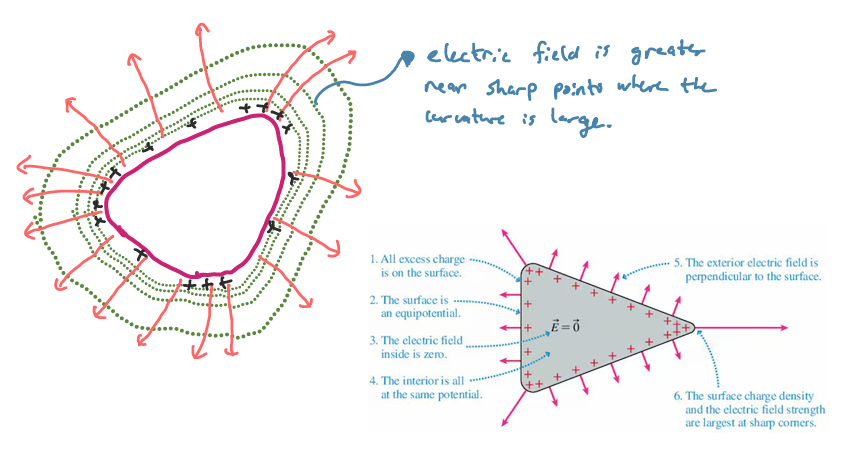 electric field is greater
near sharp points where the
curvature is large.
1. All excess charge
is on the surface.
2. The surface is
an equipotential.
3. The electric field
inside is zero.
4. The interior is all
at the same potential.
E⃗ = 0⃗
5. The exterior electric field is
perpendicular to the surface.
6. The surface charge density
and the electric field strength
are largest at sharp corners.